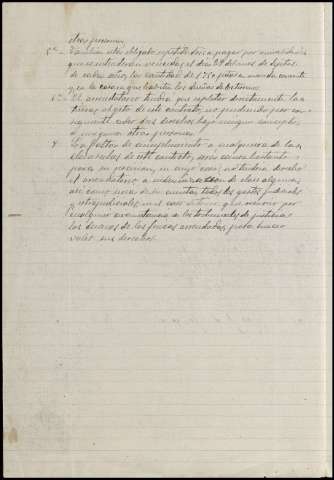 otras personas.
5ª.- También esta obligado repetido Señor a pagar por anualidades
que se entenderán vencidas el día 29 del mes de Septbre.
de cada año, la cantidad de 1.750 pesetas
y en la casa que habiten los dueños de
6ª.- El arrendatario tendrá que explotar directamente las
tierras objeto de este contrato, no pudiendo por con-
siguiente ceder sus derechos bajo ningun concepto,
a ninguna otra persona.
7 La falta de cumplimiento a cualquiera de las
clausulas de este contrato, será causa bastante
para su rescision, en cuyo caso, no tendra derecho
el arrendatario a indemnización de clase alguna,
asi como seran de su cuenta todos los gastos judiciales
y extrajudiciales, en el caso de tener que recurrir por
cualquier circunstancia a los tribunales de justicia
los dueños de las fincas arrendadas, para hacer
valer sus derechos.